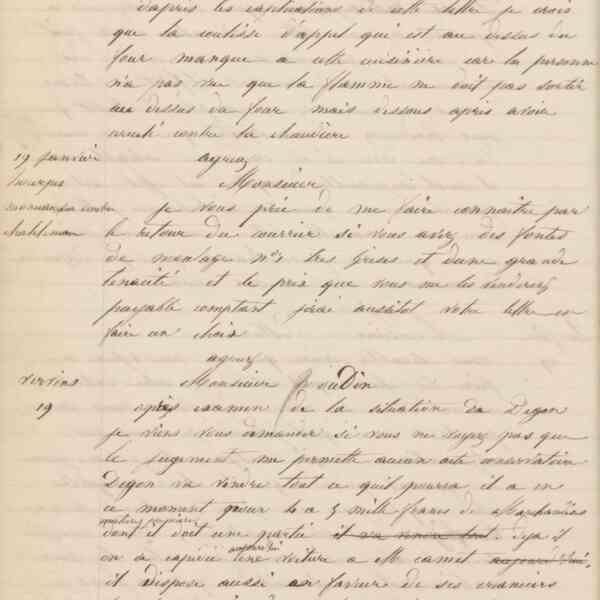 d'après les explications de cette lettre je crois
que la coulisse d'appel qui est au dessus du
four manque a cette cuisinière car la personne
n'a pas vue que la flamme ne doit pas sortir
au dessus du four mais dessous apres avoir
circulé contre la chaudière
19 janvier agréez
Monsieur
je vous prié de me faire connaitre par
le retour du courrier si vous avez des fontes
de moulage n° 1 très grises et d'une grande
tenacité et le prix que vous me les vendrez
payable comptant j'irai aussitot votre lettre en
faire un choix
agréez
vervins Monsieur
19 après examen de la situation de Degon
je viens vous demander si vous ne voyez pas que
le jugement me permette aucun acte conservatoire
Degon va vendre tout ce qu'il pourra il a en
ce moment pour 4 a 5 mille francs de Marchandises
dont il doit une partie il va vendre tout. deja il
on a expédié aujourd'hui une voiture a Mr camet aujourd'hui,
il dispose aussi en faveur de ses créanciers